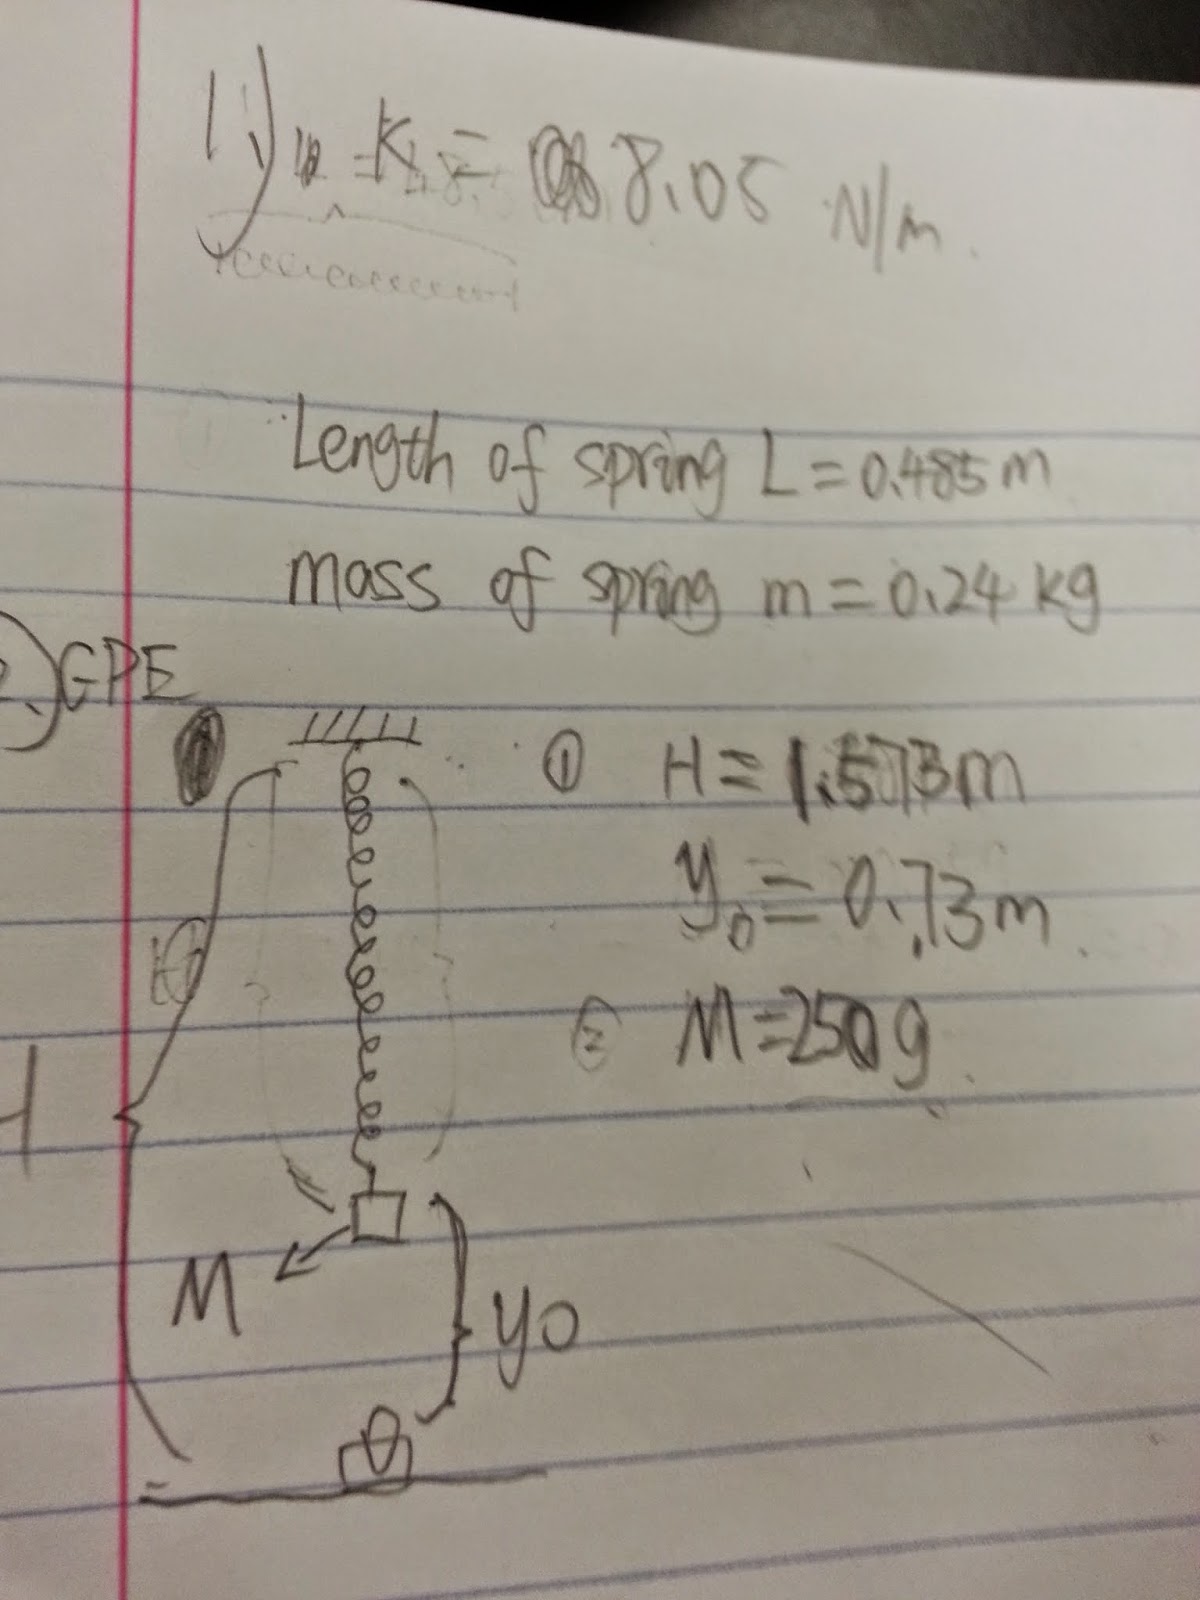 1.) K = 8.05 N/m.
Length of spring L = 0.485m
mass of spring m = 0.24 kg
2.) GPE
① H = 1.573m
y₀ = 0.73m.
② M = 250g
H
M
y0